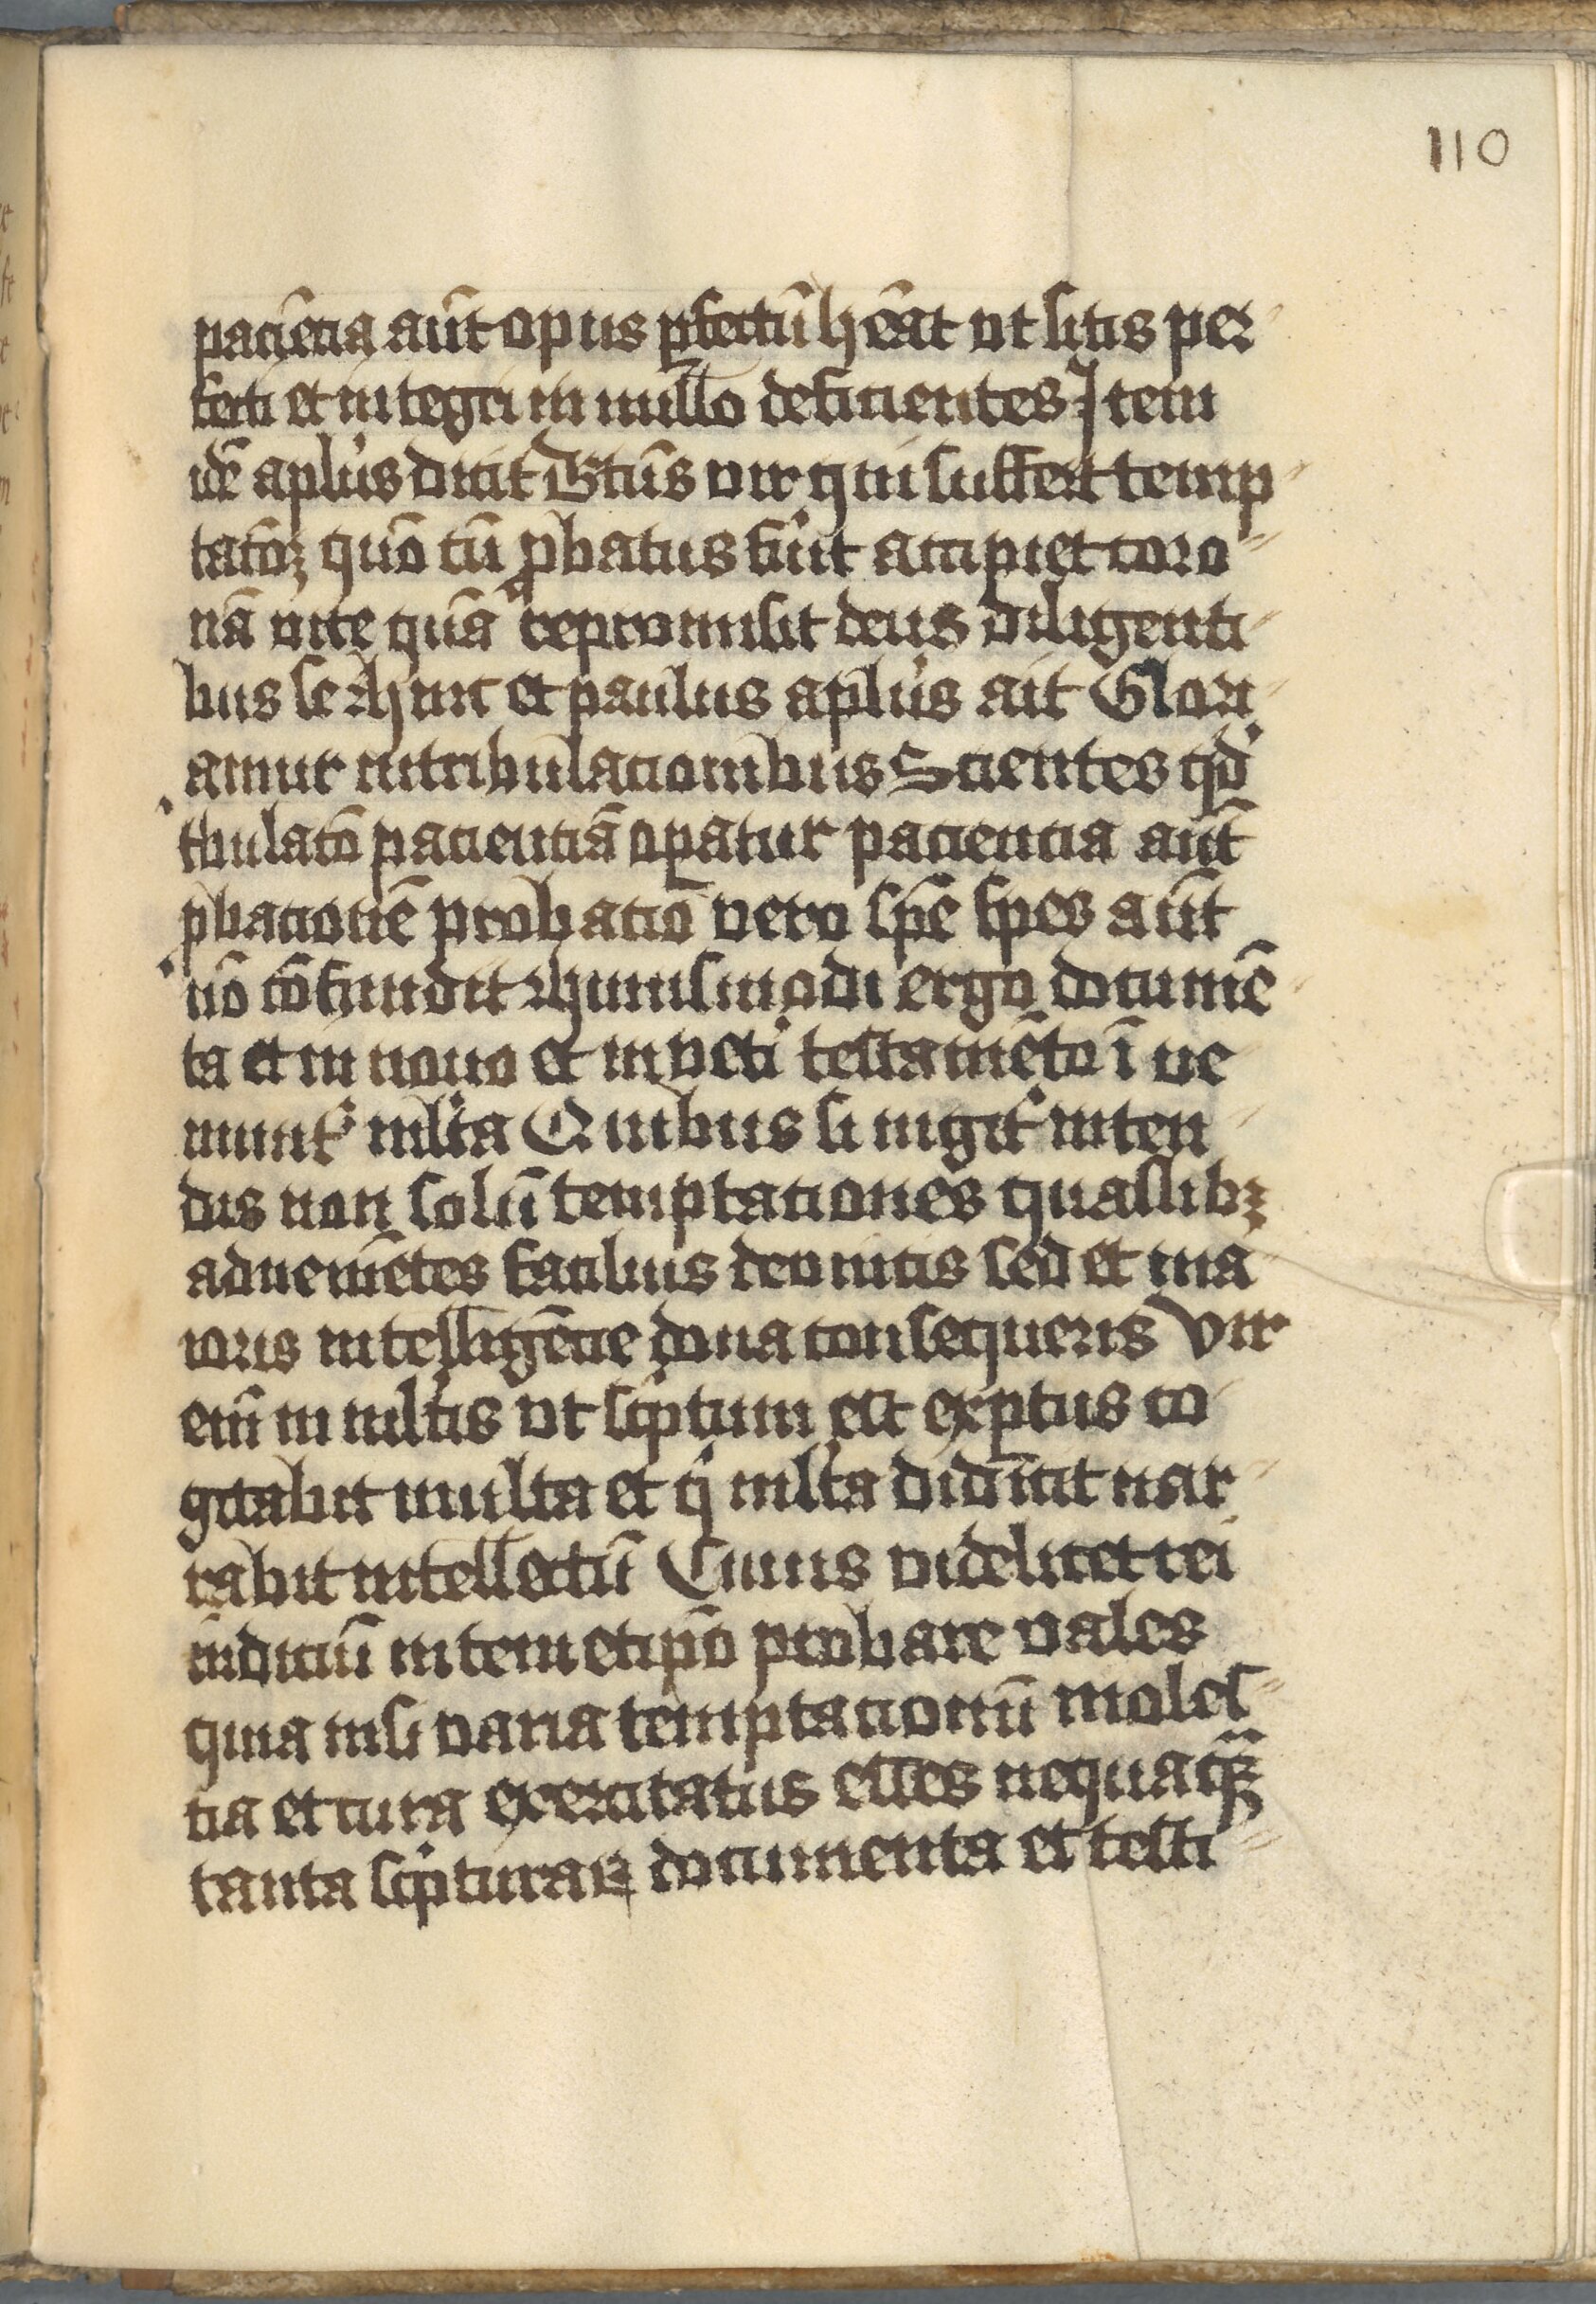 110
paciẽcia aũt opus ꝑfectũ hẽat vt sitis per
fecti et integri in nullo deficientes Item
idẽ aplus dicit Btũs vir qui suffert temp
tatõꝫ quõ cũ ꝓbatus fuit accipiet coro
nã vite quã repromisit deus diligenti
bus se Hinc et paulus aplus ait Glori
amur in tribulacionibus Scientes qd
tbulatõ pacientiã oꝑatur paciencia aũt
ꝓbacionẽ probacio vero spẽ spes aũt
nõ cõfundit Huiusmodi ergo documẽ
ta et in nouo et in veti testamẽto ĩ ue
niunt mlta Quibus si iugit inten
dis non solũ temptationes quaslibꝫ
adueniẽtes facilius deuincis sed et ma
ioris intelligẽcie dona consequeris Vir
eni in multis vt scptum est exptus co
gitabit multa et q̃ mlta didicit nar
rabit intellectũ Cuius videlicet rei
iudiciũ in temetipõ probare vales
quia nisi varia temptationũ moles
tia et cura exercitatus esses nequaqꝫ
tanta scpturaꝝ documenta et testi